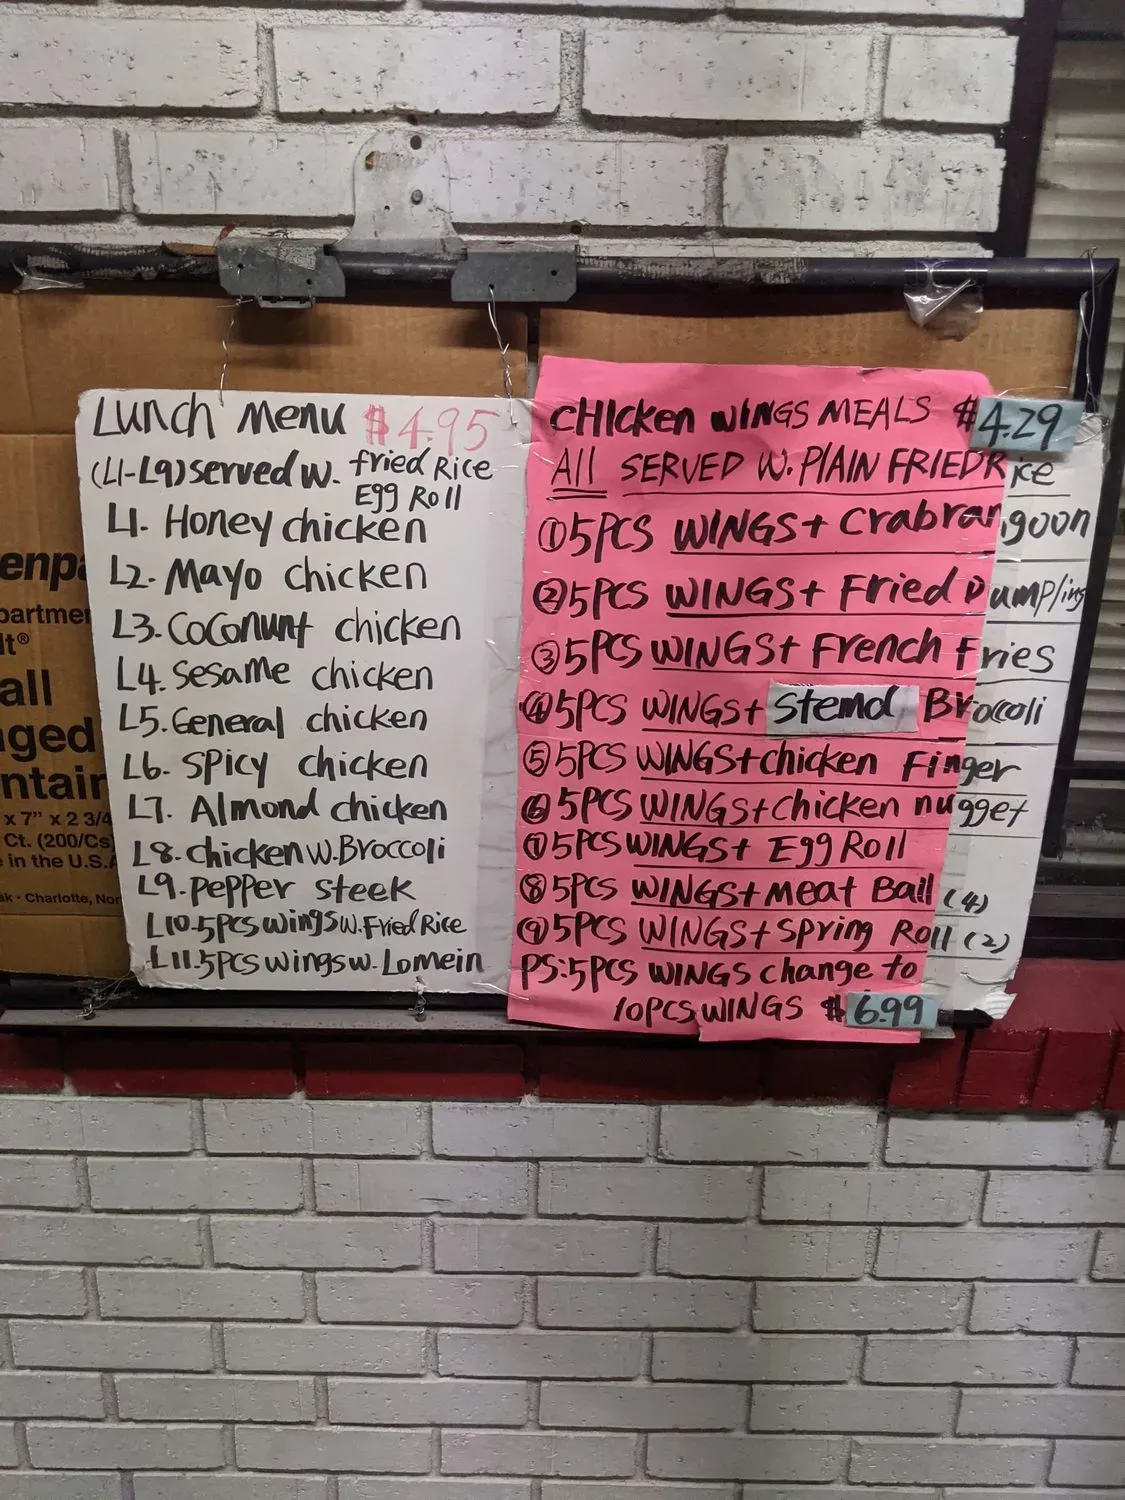 Lunch Menu $4.95
(L1-L9) served w. fried Rice
Egg Roll
L1. Honey chicken
L2. Mayo chicken
L3. Coconunt chicken
L4. Sesame chicken
L5. General chicken
L6. Spicy chicken
L7. Almond chicken
L8. chicken w. Broccoli
L9. Pepper steek
L10. 5PCS wings w. Fried Rice
L11. 5PCS wings w. Lomein
CHIcken WINGS MEALS $4.29
All SERVED W. PlAIN FRIED Rice
① 5PCS WINGS + Crabrangoon
② 5PCS WINGS + Fried Dumpling
③ 5PCS WINGS + French Fries
④ 5PCS WINGS + Stemd Broccoli
⑤ 5PCS WINGS + chicken Finger
⑥ 5PCS WINGS + chicken nugget
⑦ 5PCS WINGS + Egg Roll
⑧ 5PCS WINGS + Meat Ball (4)
⑨ 5PCS WINGS + Spring Roll (2)
PS: 5PCS WINGS change to
10PCS WINGS $6.99
enpa
partme
lt®
all
ged
ntain
x 7" x 2 3/4
Ct. (200/Cs
in the U.S.A
ak · Charlotte, Nor